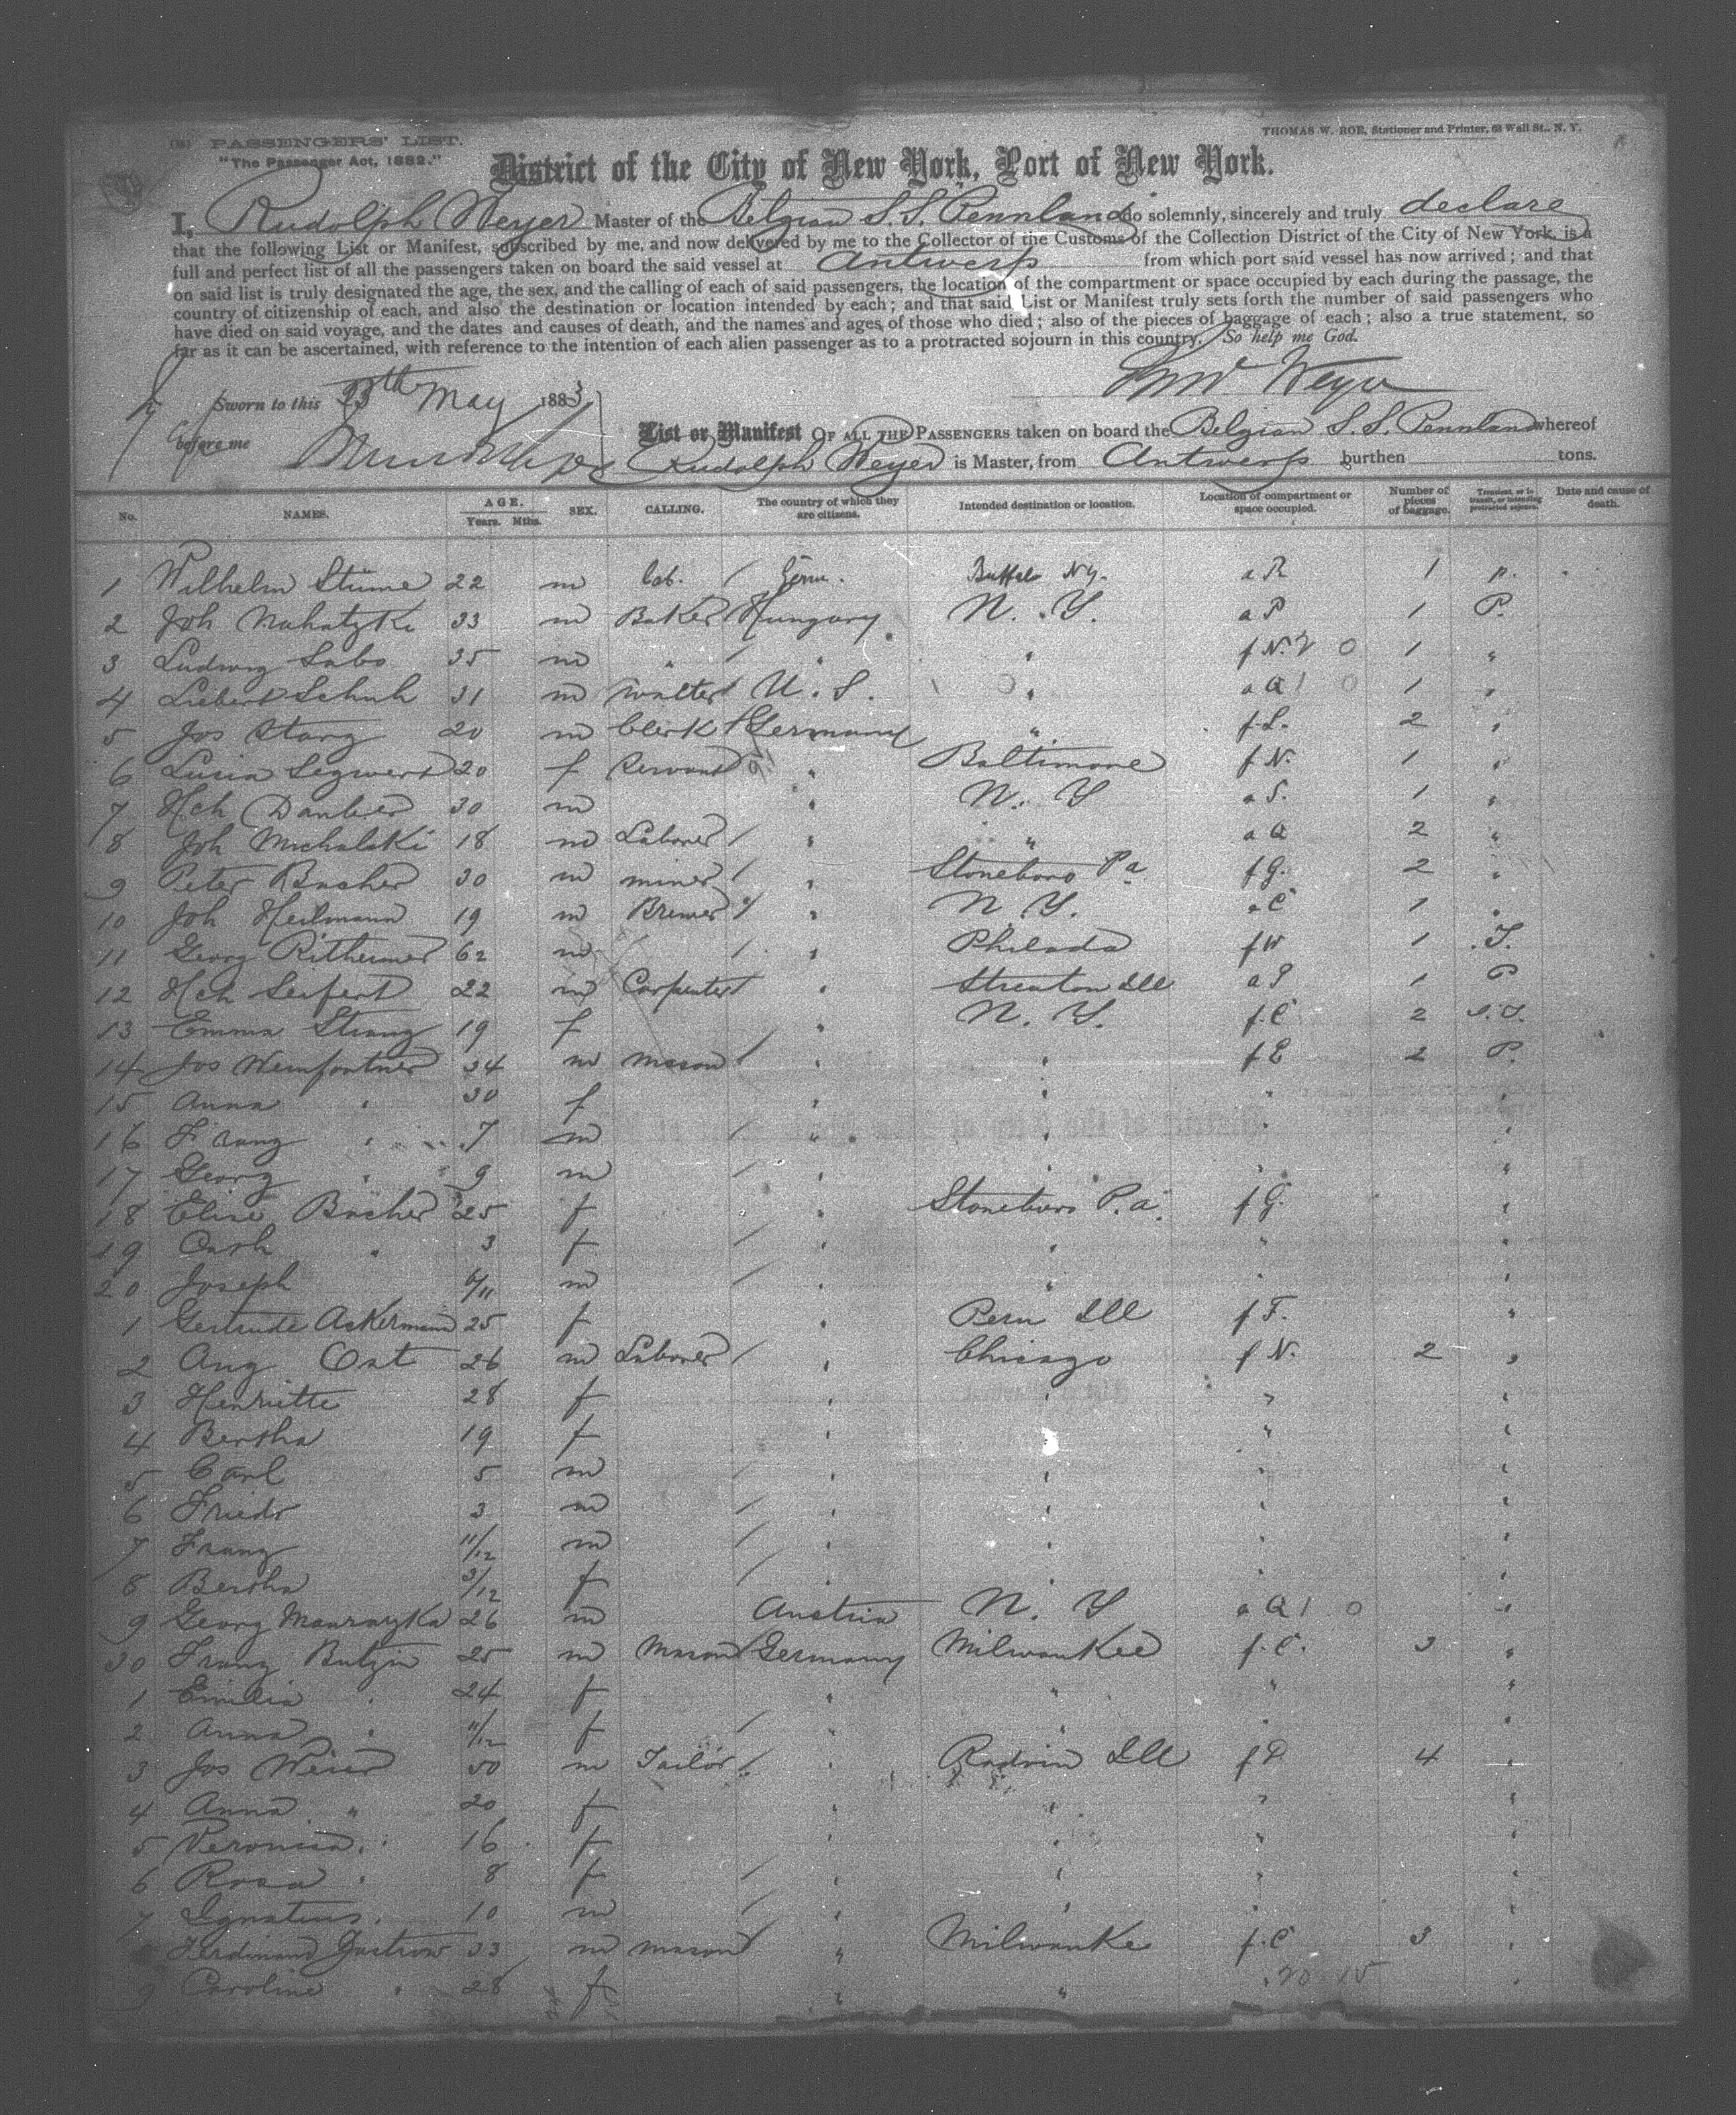 PASSENGERS' LIST.
THOMAS W. ROE, Stationer and Printer, 63 Wall St., N. Y.
"The Passenger Act, 1882."
District of the City of New York, Port of New York.
I, Rudolph Weyer Master of the Belgian S.S. Pennland do solemnly, sincerely and truly declare
that the following List or Manifest, subscribed by me, and now delivered by me to the Collector of the Customs of the Collection District of the City of New York, is a
full and perfect list of all the passengers taken on board the said vessel at Antwerp from which port said vessel has now arrived; and that
on said list is truly designated the age, the sex, and the calling of each of said passengers, the location of the compartment or space occupied by each during the passage, the
country of citizenship of each, and also the destination or location intended by each; and that said List or Manifest truly sets forth the number of said passengers who
have died on said voyage, and the dates and causes of death, and the names and ages of those who died; also of the pieces of baggage of each; also a true statement, so
far as it can be ascertained, with reference to the intention of each alien passenger as to a protracted sojourn in this country. So help me God.
Weyer
Sworn to this 23th May 1883
before me
List or Manifest OF ALL THE PASSENGERS taken on board the Belgian S.S. Pennland whereof
Rudolph Weyer is Master, from Antwerp burthen tons.
No. NAMES. AGE. Years. Mths. SEX. CALLING. The country of which they are citizens. Intended destination or location. Location of compartment or space occupied. Number of pieces of baggage. Transient, or in transit, or intending protracted sojourn. Date and cause of death.
1 Wilhelm Stüme 22 m Lab. Germ. Buffalo N.Y. a R 1 p.
2 Joh 33 m Baker Hungary N. Y. a P 1 P.
3 Ludwig Sabo 35 m " " " f N. 2 0 1 "
4 Liebert Schuh 31 m waiter U. S. " a Q 1 0 1 "
5 Jos Starz 20 m Clerk Germany " f L. 2 "
6 Lucia 20 f Servant " Baltimore f N. 1 "
7 Hch Dauber 30 m " N. Y a S. 1 "
8 Joh Michalski 18 m Laborer " " a Q 2 "
9 Peter Bucher 30 m miner " Stoneboro Pa f G. 2 "
10 Joh Heilmann 19 m Brewer " N. Y. a C 1 "
11 Georg Ritheimer 62 m " Philada f W 1 T.
12 Hch Seifert 22 m Carpenter " Streaton Ill a P 1 P
13 Emma Strang 19 f " N. Y. f. C 2
14 Jos Weinfortner 34 m mason " " f E 2 P.
15 Anna " 30 f " " " "
16 Franz " 7 m " " " "
17 Georg " 9 m " " " "
18 Elise Bucher 25 f " Stoneboro P.a. f G. "
19 Cash " 3 f " " " "
20 Joseph 6/11 m " " " "
1 Gertrude Ackermann 25 f " Peru Ill f F. "
2 Aug Ost 26 m Laborer " Chicago f N. 2 "
3 Henriette 28 f " " " "
4 Bertha 19 f " " " "
5 Carl 5 m " " " "
6 Friedr 3 m " " " "
7 Franz 11/12 m " " " "
8 Bertha 3/12 f " " " "
9 Georg 26 m Austria N. Y a Q 1 0 "
30 Franz Butzin 25 m Mason Germany Milwaukee f. C. 3 "
1 Emilia " 24 f " " " "
2 Anna " 11/12 f " " " "
3 Jos Weier 50 m Tailor " Ill f P 4 "
4 Anna " 20 f " " " "
5 Veronica " 16 f " " " "
6 Rosa " 8 f " " " "
7 Ignatius " 10 m " " " "
Ferdinand Gustrow 33 m mason " Milwauke f. C 3 "
9 Caroline " 28 f " " "
20 15